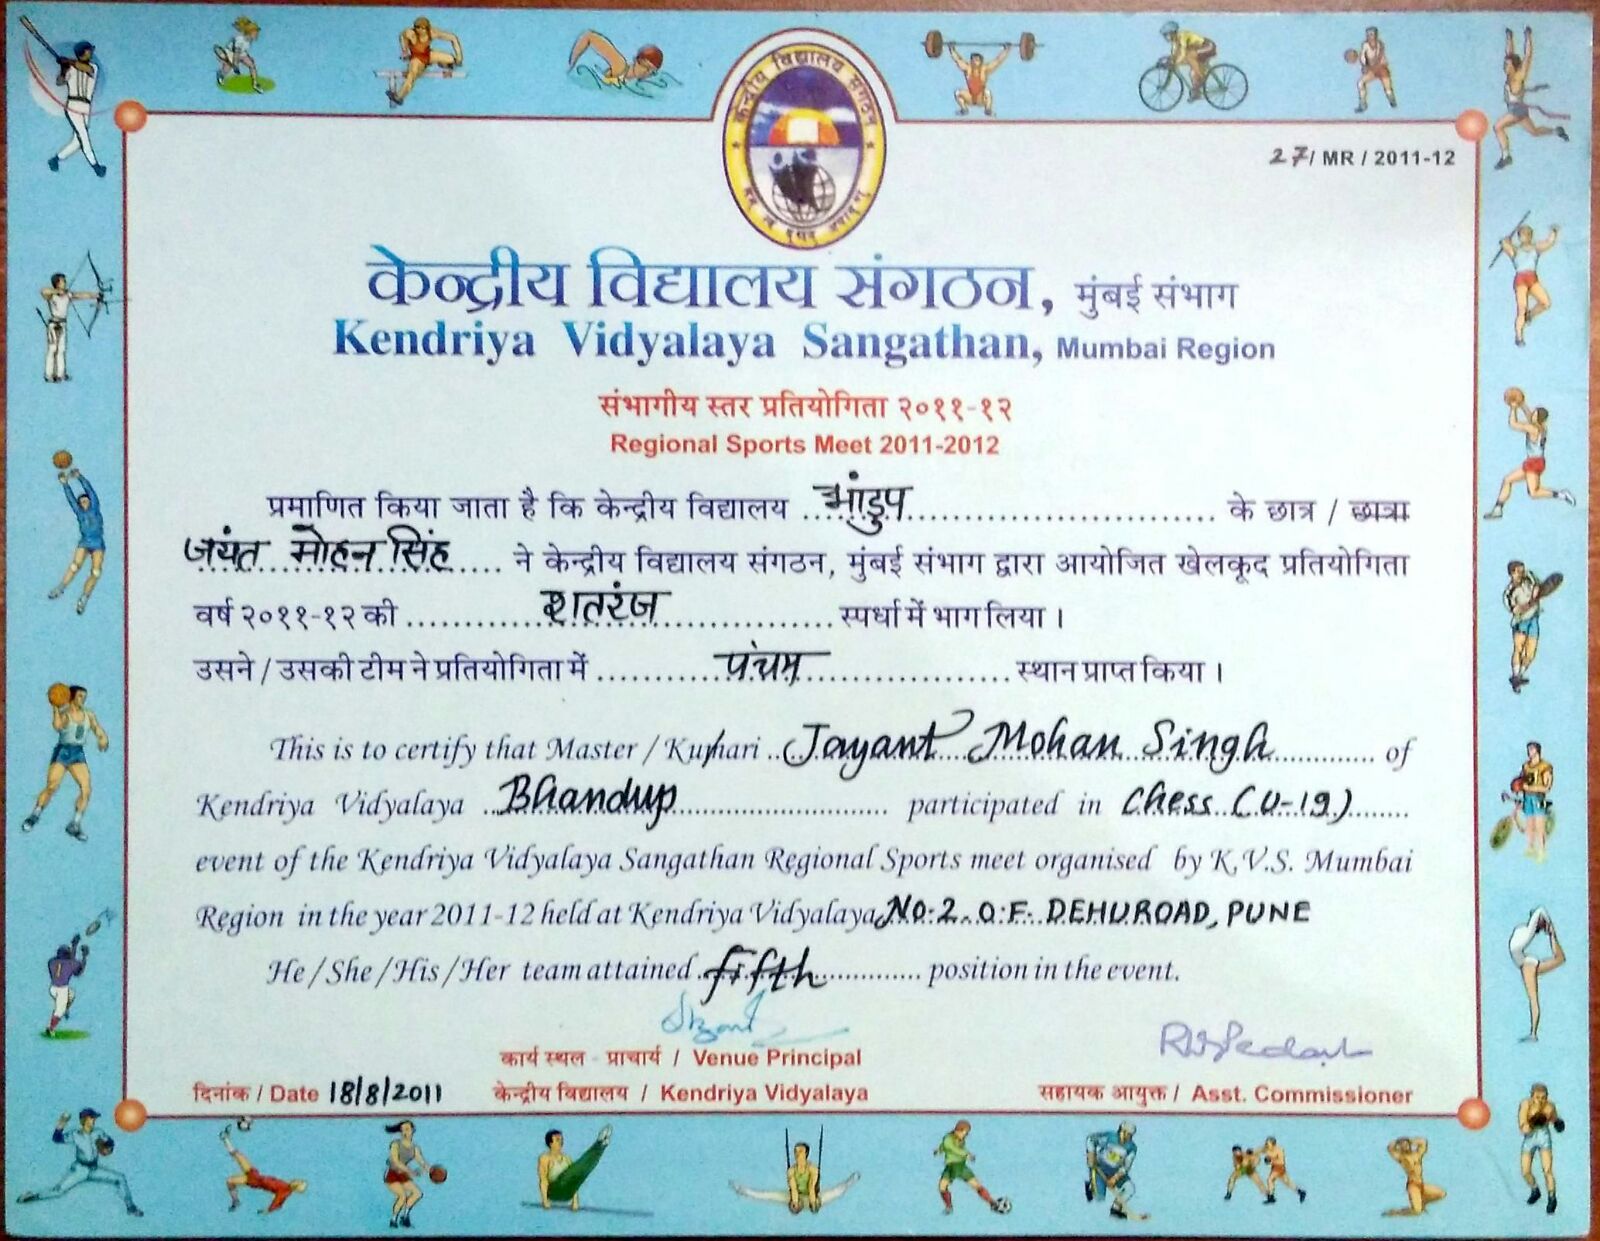 केन्द्रीय विद्यालय संगठन
27/ MR / 2011-12
केन्द्रीय विद्यालय संगठन, मुंबई संभाग
Kendriya Vidyalaya Sangathan, Mumbai Region
संभागीय स्तर प्रतियोगिता २०११-१२
Regional Sports Meet 2011-2012
प्रमाणित किया जाता है कि केन्द्रीय विद्यालय ...भांडुप................................ के छात्र / छात्रा
जयंत मोहन सिंह.... ने केन्द्रीय विद्यालय संगठन, मुंबई संभाग द्वारा आयोजित खेलकूद प्रतियोगिता
वर्ष २०११-१२ की ............शतरंज.................. स्पर्धा में भाग लिया ।
उसने / उसकी टीम ने प्रतियोगिता में ...........पंचम..................... स्थान प्राप्त किया ।
This is to certify that Master / Kumari ..Jayant Mohan Singh............. of
Kendriya Vidyalaya ..Bhandup............................... participated in Chess (U-19)........
event of the Kendriya Vidyalaya Sangathan Regional Sports meet organised by K.V.S. Mumbai
Region in the year 2011-12 held at Kendriya Vidyalaya No.2. O.F. DEHUROAD, PUNE
He / She / His / Her team attained ..fifth............. position in the event.
कार्य स्थल - प्राचार्य / Venue Principal
दिनांक / Date 18/8/2011 केन्द्रीय विद्यालय / Kendriya Vidyalaya सहायक आयुक्त / Asst. Commissioner